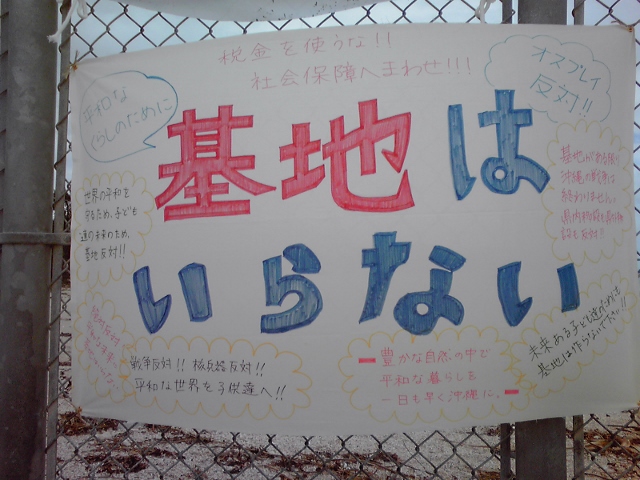 税金を使うな!!
社会保障へまわせ!!!
平和な
くらしのために
オスプレイ
反対!!
基地は
いらない
世界の平和を
守るため、子ども
達の未来のため、
基地反対!!
基地がある限り
沖縄の戦後は
終わりません。
県内移設も県外移
設も反対!!
戦争反対!! 核兵器反対!!
平和な世界を子供達へ!!
豊かな自然の中で
平和な暮らしを
一日も早く沖縄に。
未来ある子ども達のためにも
基地は作らないで下さい!!